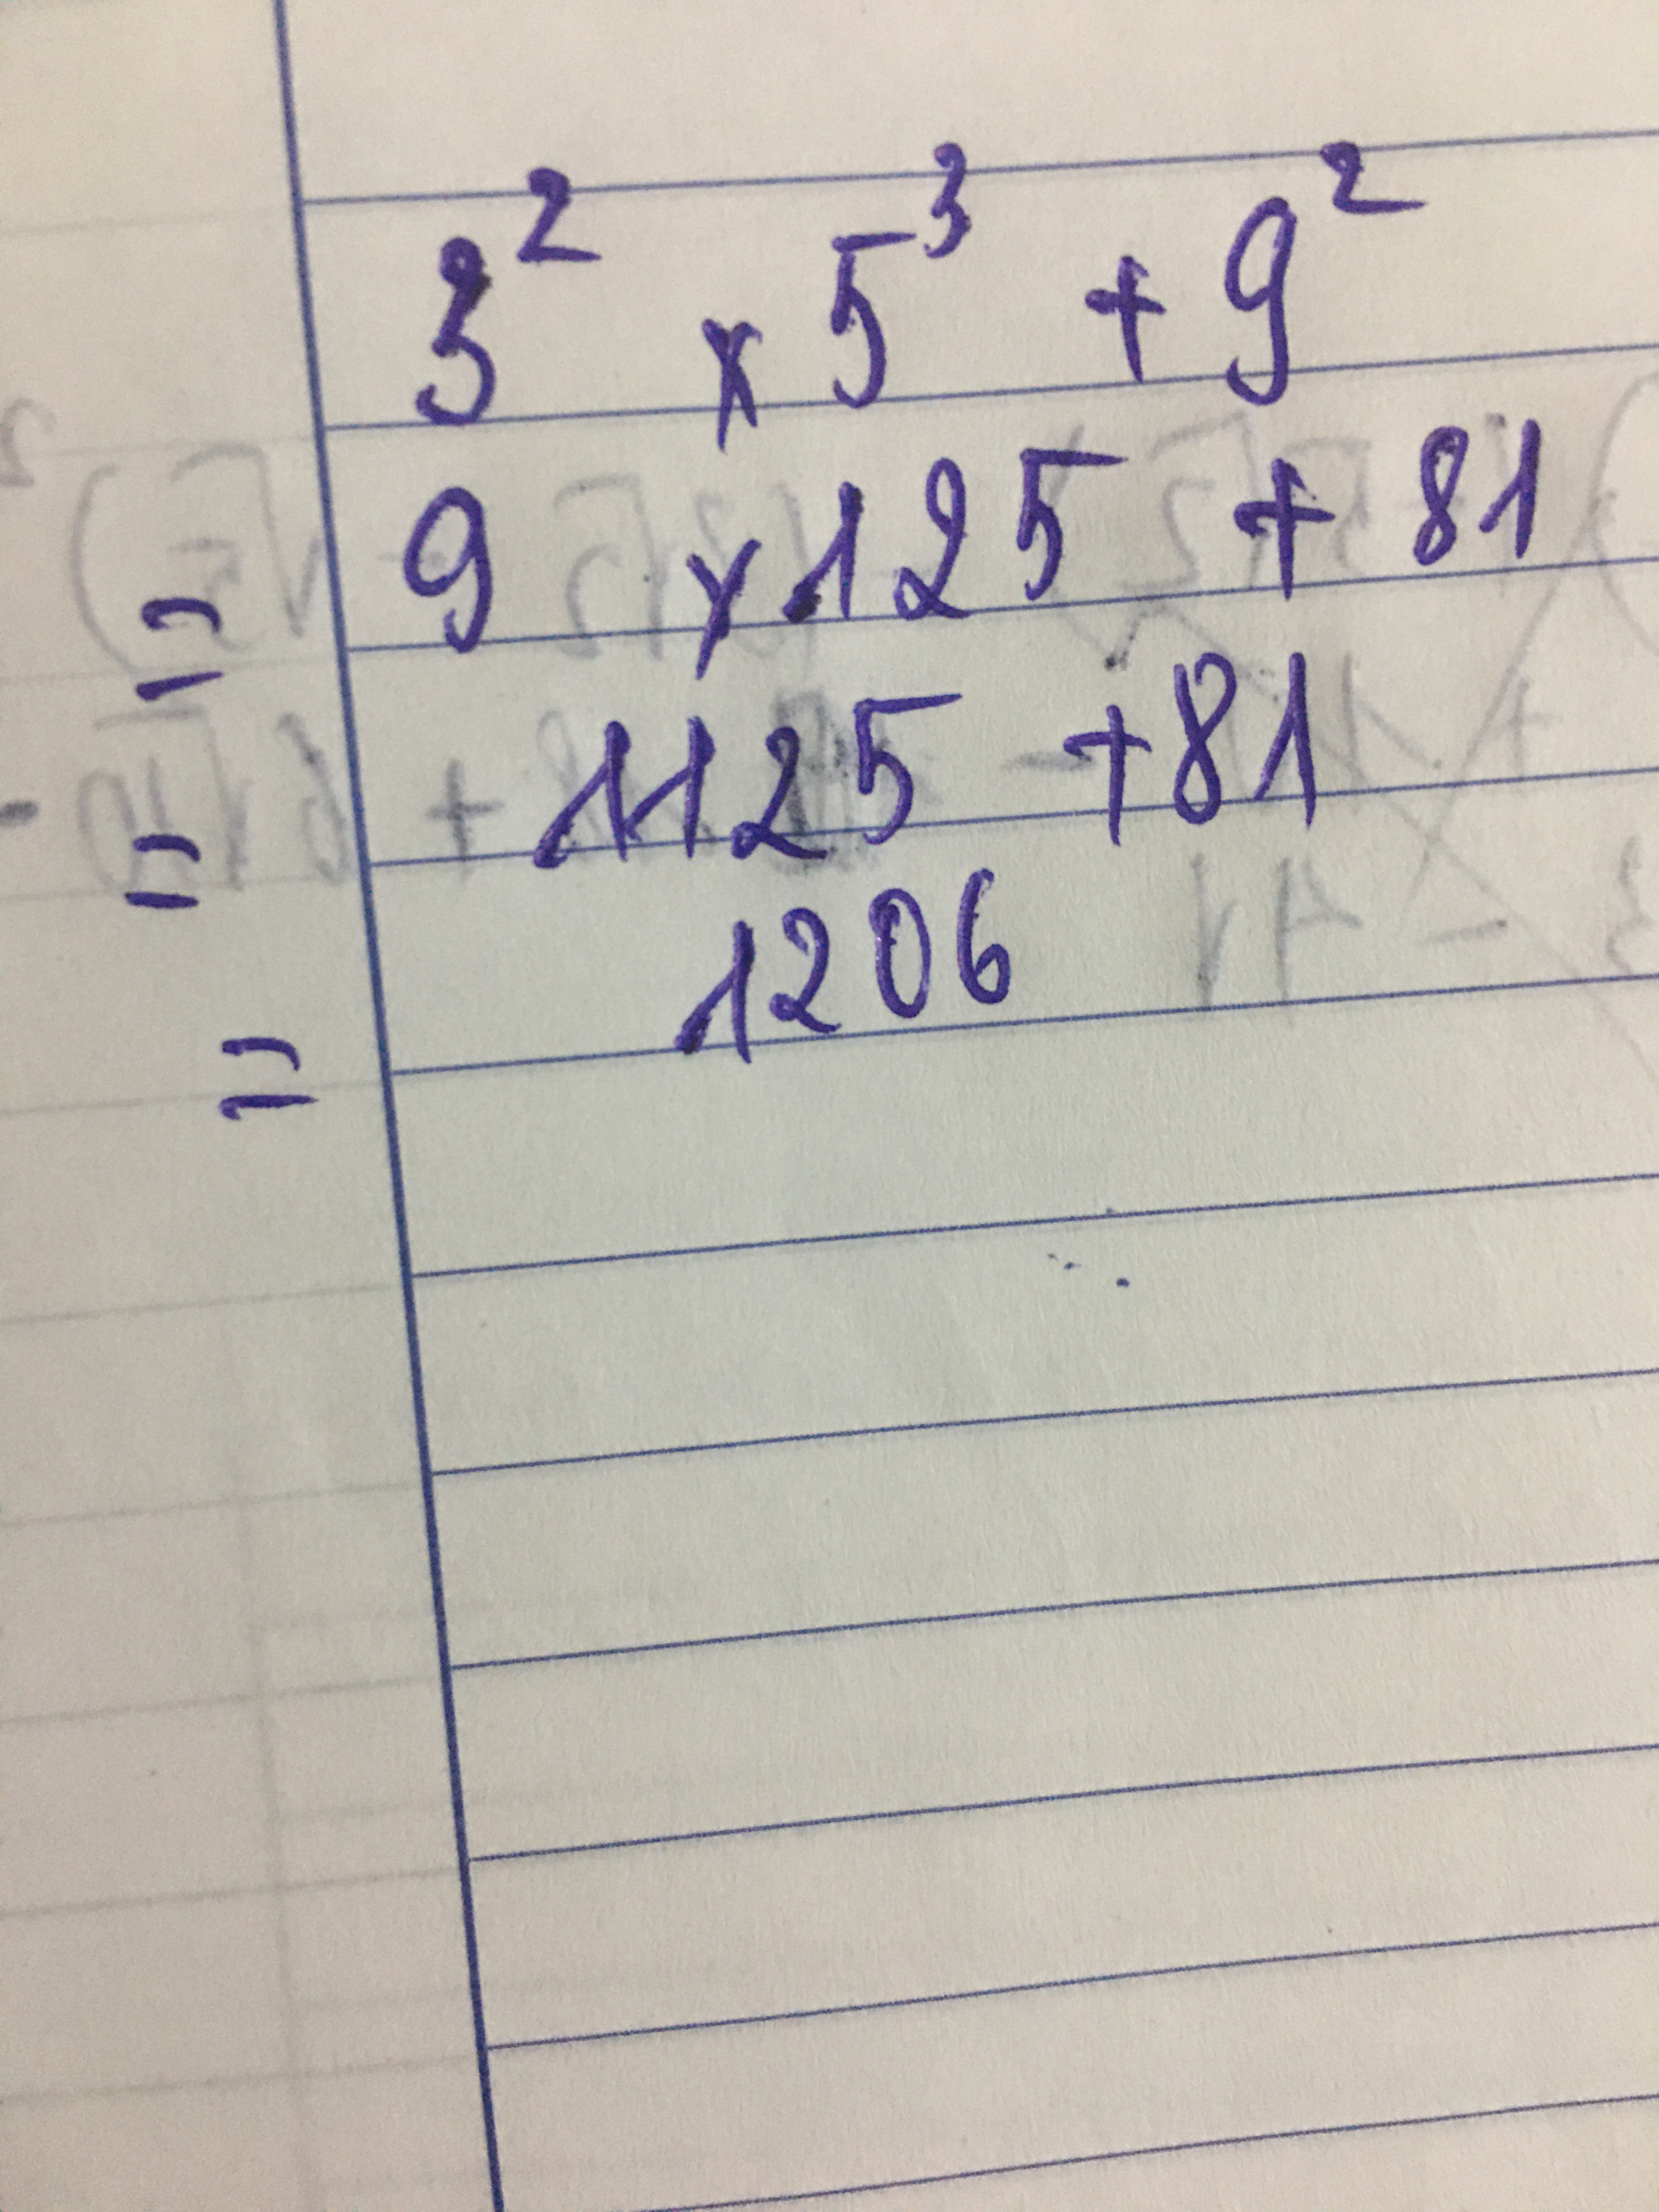 3² × 5³ + 9²
= 9 × 125 + 81
= 1125 + 81
= 1206